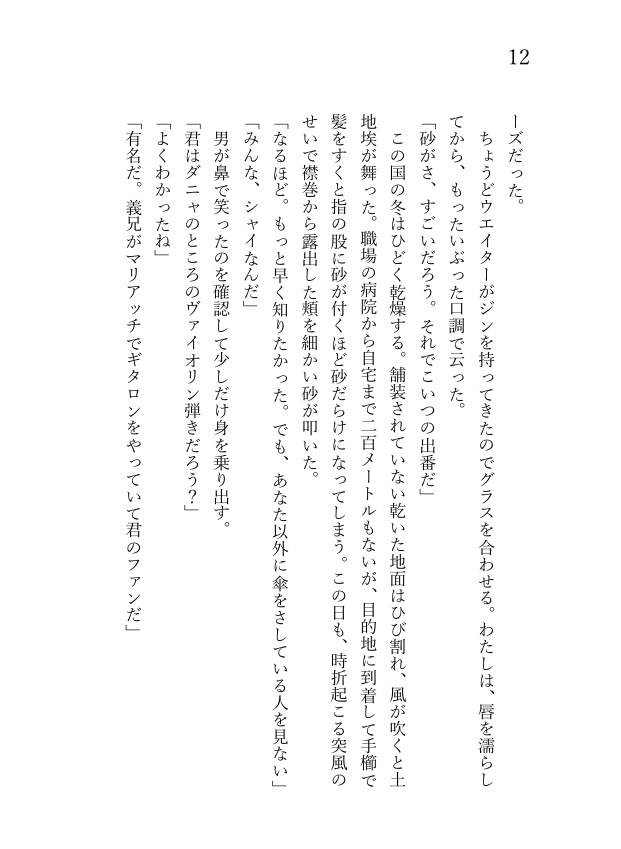 12
ーズだった。
ちょうどウエイターがジンを持ってきたのでグラスを合わせる。わたしは、唇を濡らし
てから、もったいぶった口調で云った。
「砂がさ、すごいだろう。それでこいつの出番だ」
この国の冬はひどく乾燥する。舗装されていない乾いた地面はひび割れ、風が吹くと土
地埃が舞った。職場の病院から自宅まで二百メートルもないが、目的地に到着して手櫛で
髪をすくと指の股に砂が付くほど砂だらけになってしまう。この日も、時折起こる突風の
せいで襟巻から露出した頬を細かい砂が叩いた。
「なるほど。もっと早く知りたかった。でも、あなた以外に傘をさしている人を見ない」
「みんな、シャイなんだ」
男が鼻で笑ったのを確認して少しだけ身を乗り出す。
「君はダニャのところのヴァイオリン弾きだろう？」
「よくわかったね」
「有名だ。義兄がマリアッチでギタロンをやっていて君のファンだ」